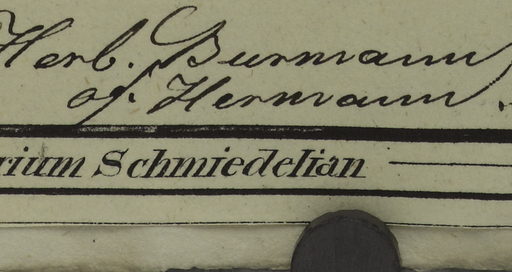 Herb. Burmann
of Hermann.
rium Schmiedelian